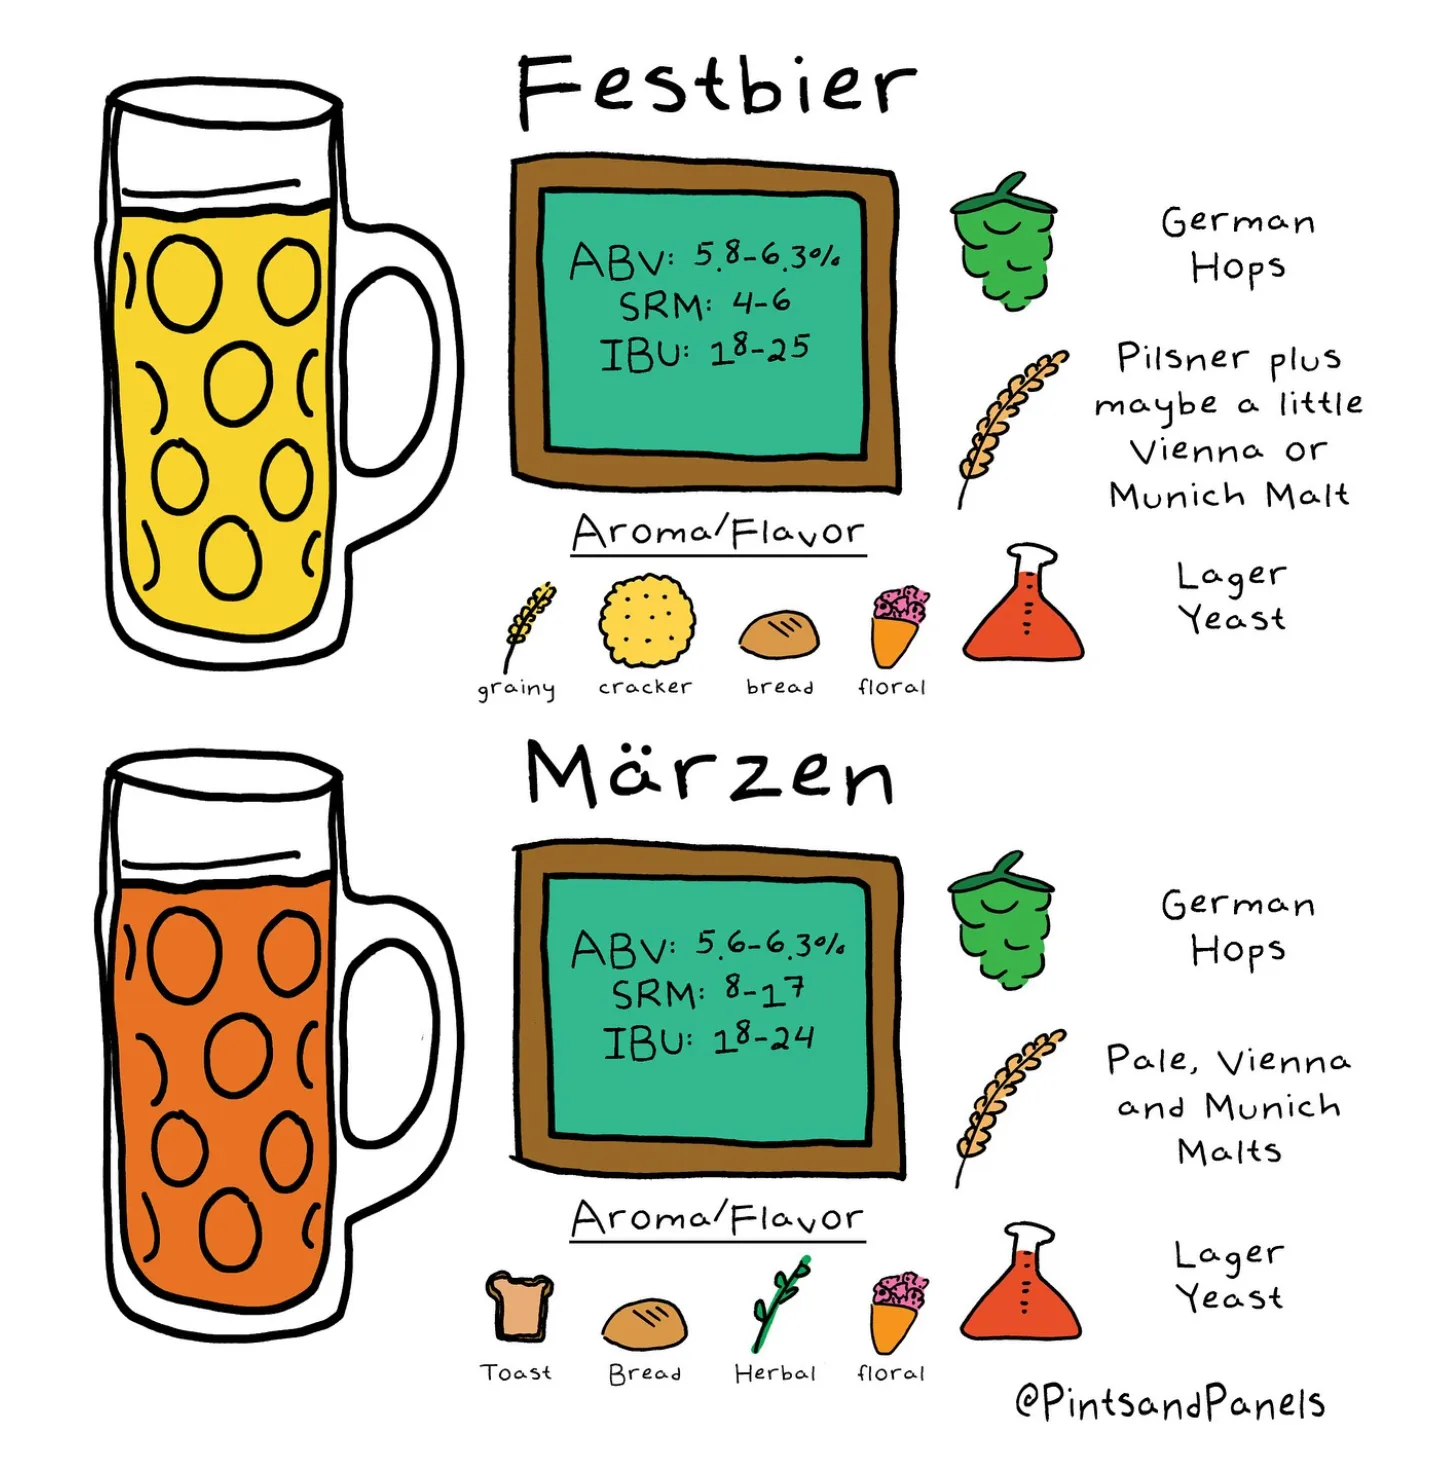 Festbier
ABV: 5.8-6.3%
SRM: 4-6
IBU: 18-25
German
Hops
Pilsner plus
maybe a little
Vienna or
Munich Malt
Lager
Yeast
Aroma/Flavor
grainy
cracker
bread
floral
Märzen
ABV: 5.6-6.3%
SRM: 8-17
IBU: 18-24
German
Hops
Pale, Vienna
and Munich
Malts
Lager
Yeast
Aroma/Flavor
Toast
Bread
Herbal
floral
@PintsandPanels